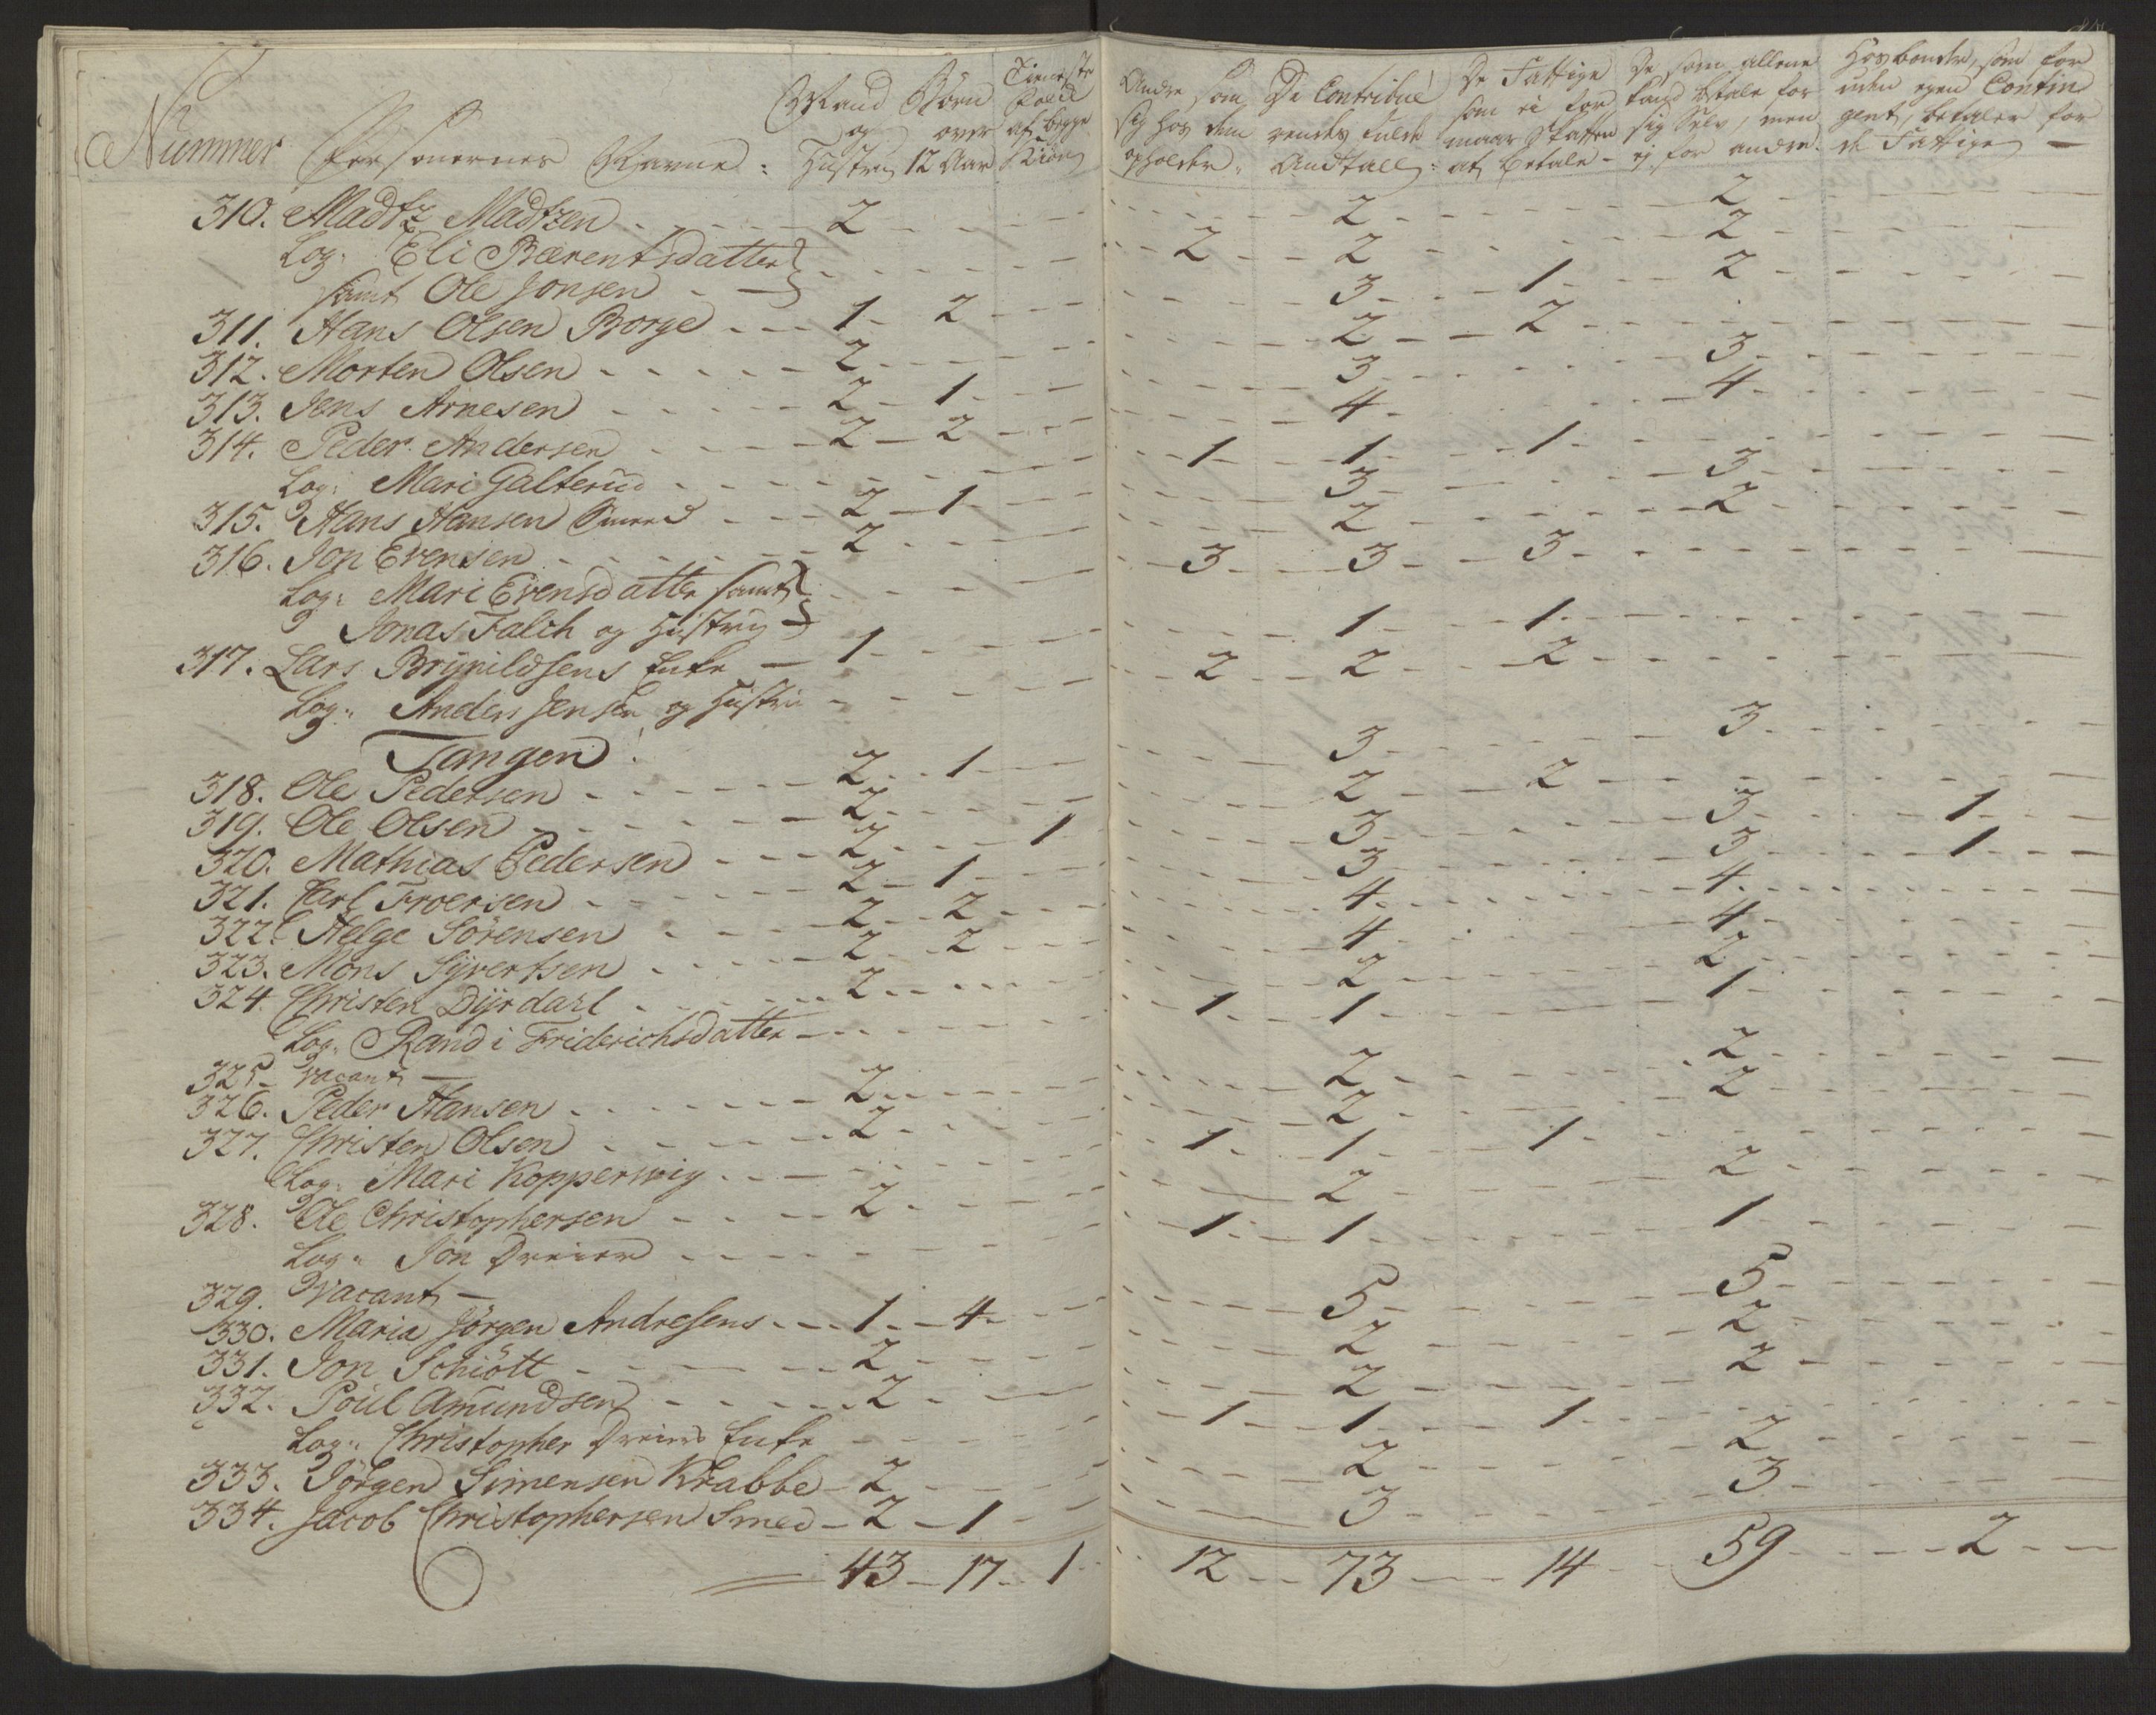 Nummer Personernes Navne: Mand og Hustru Börn over 12 Aar Tieneste Folck af begge Kiön Andre som sig hos dem opholder. De Contribuerendes fulde Andtall: De Fattige som ei formaar Skatten at betale - De som allene kand betale for sig Selv, men ej for andre. Hosbonder, som for uden egen Contingent, betaler for de Fattige -
310. Madtz Madtzen - 2 - 2 - 2
Log: Eli Bærentsdatter
samt Ole Jonsen - 2 - 2 - 2
311. Hans Olsen Borge - 1 - 2 - 3 - 1 - 2
312. Morten Olsen - 2 - 2 - 2
313. Jens Arnesen - 2 - 1 - 3 - 3
314. Peder Andersen - 2 - 2 - 4 - 4
Log: Mari Galterud - 1 - 1 - 1
315. Hans Hansen Smed - 2 - 1 - 3 - 3
316. Jon Evensen - 2 - 2 - 2
Log: Mari Evensdatter samt
Jonas Falch og Hustru - 3 - 3 - 3
317. Lars Brynildsens Enke - 1 - 1 - 1
Log: Anders Jensen og Hustru - 2 - 2 - 2
Tangen
318. Ole Pedersen - 2 - 1 - 3 - 3
319. Ole Olsen - 2 - 2 - 2
320. Mathias Pedersen - 2 - 1 - 3 - 3 - 1
321. Carl Froersen - 2 - 1 - 3 - 3 - 1
322. Helge Sörensen - 2 - 2 - 4 - 4
323. Mons Syvertsen - 2 - 2 - 4 - 4
324. Christen Dyrdarl - 2 - 2 - 2
Log: Randi Friderichsdatter - 1 - 1 - 1
325. vacant -
326. Peder Hansen - 2 - 2 - 2
327. Christen Olsen - 2 - 2 - 2
Log: Mari Kopperwig - 1 - 1 - 1
328. Ole Christophersen - 2 - 2 - 2
Log: Jon Dreier - 1 - 1 - 1
329. Vacant -
330. Maria Jörgen Andresens - 1 - 4 - 5 - 5
331. Jon Schiött - 2 - 2 - 2
332. Poul Amundsen - 2 - 2 - 2
Log: Christopher Dreiers Enke - 1 - 1 - 1
333. Jörgen Simensen Krabbe - 2 - 2 - 2
334. Jacob Christophersen Smed - 2 - 1 - 3 - 3
43 - 17 - 1 - 12 - 73 - 14 - 59 - 2